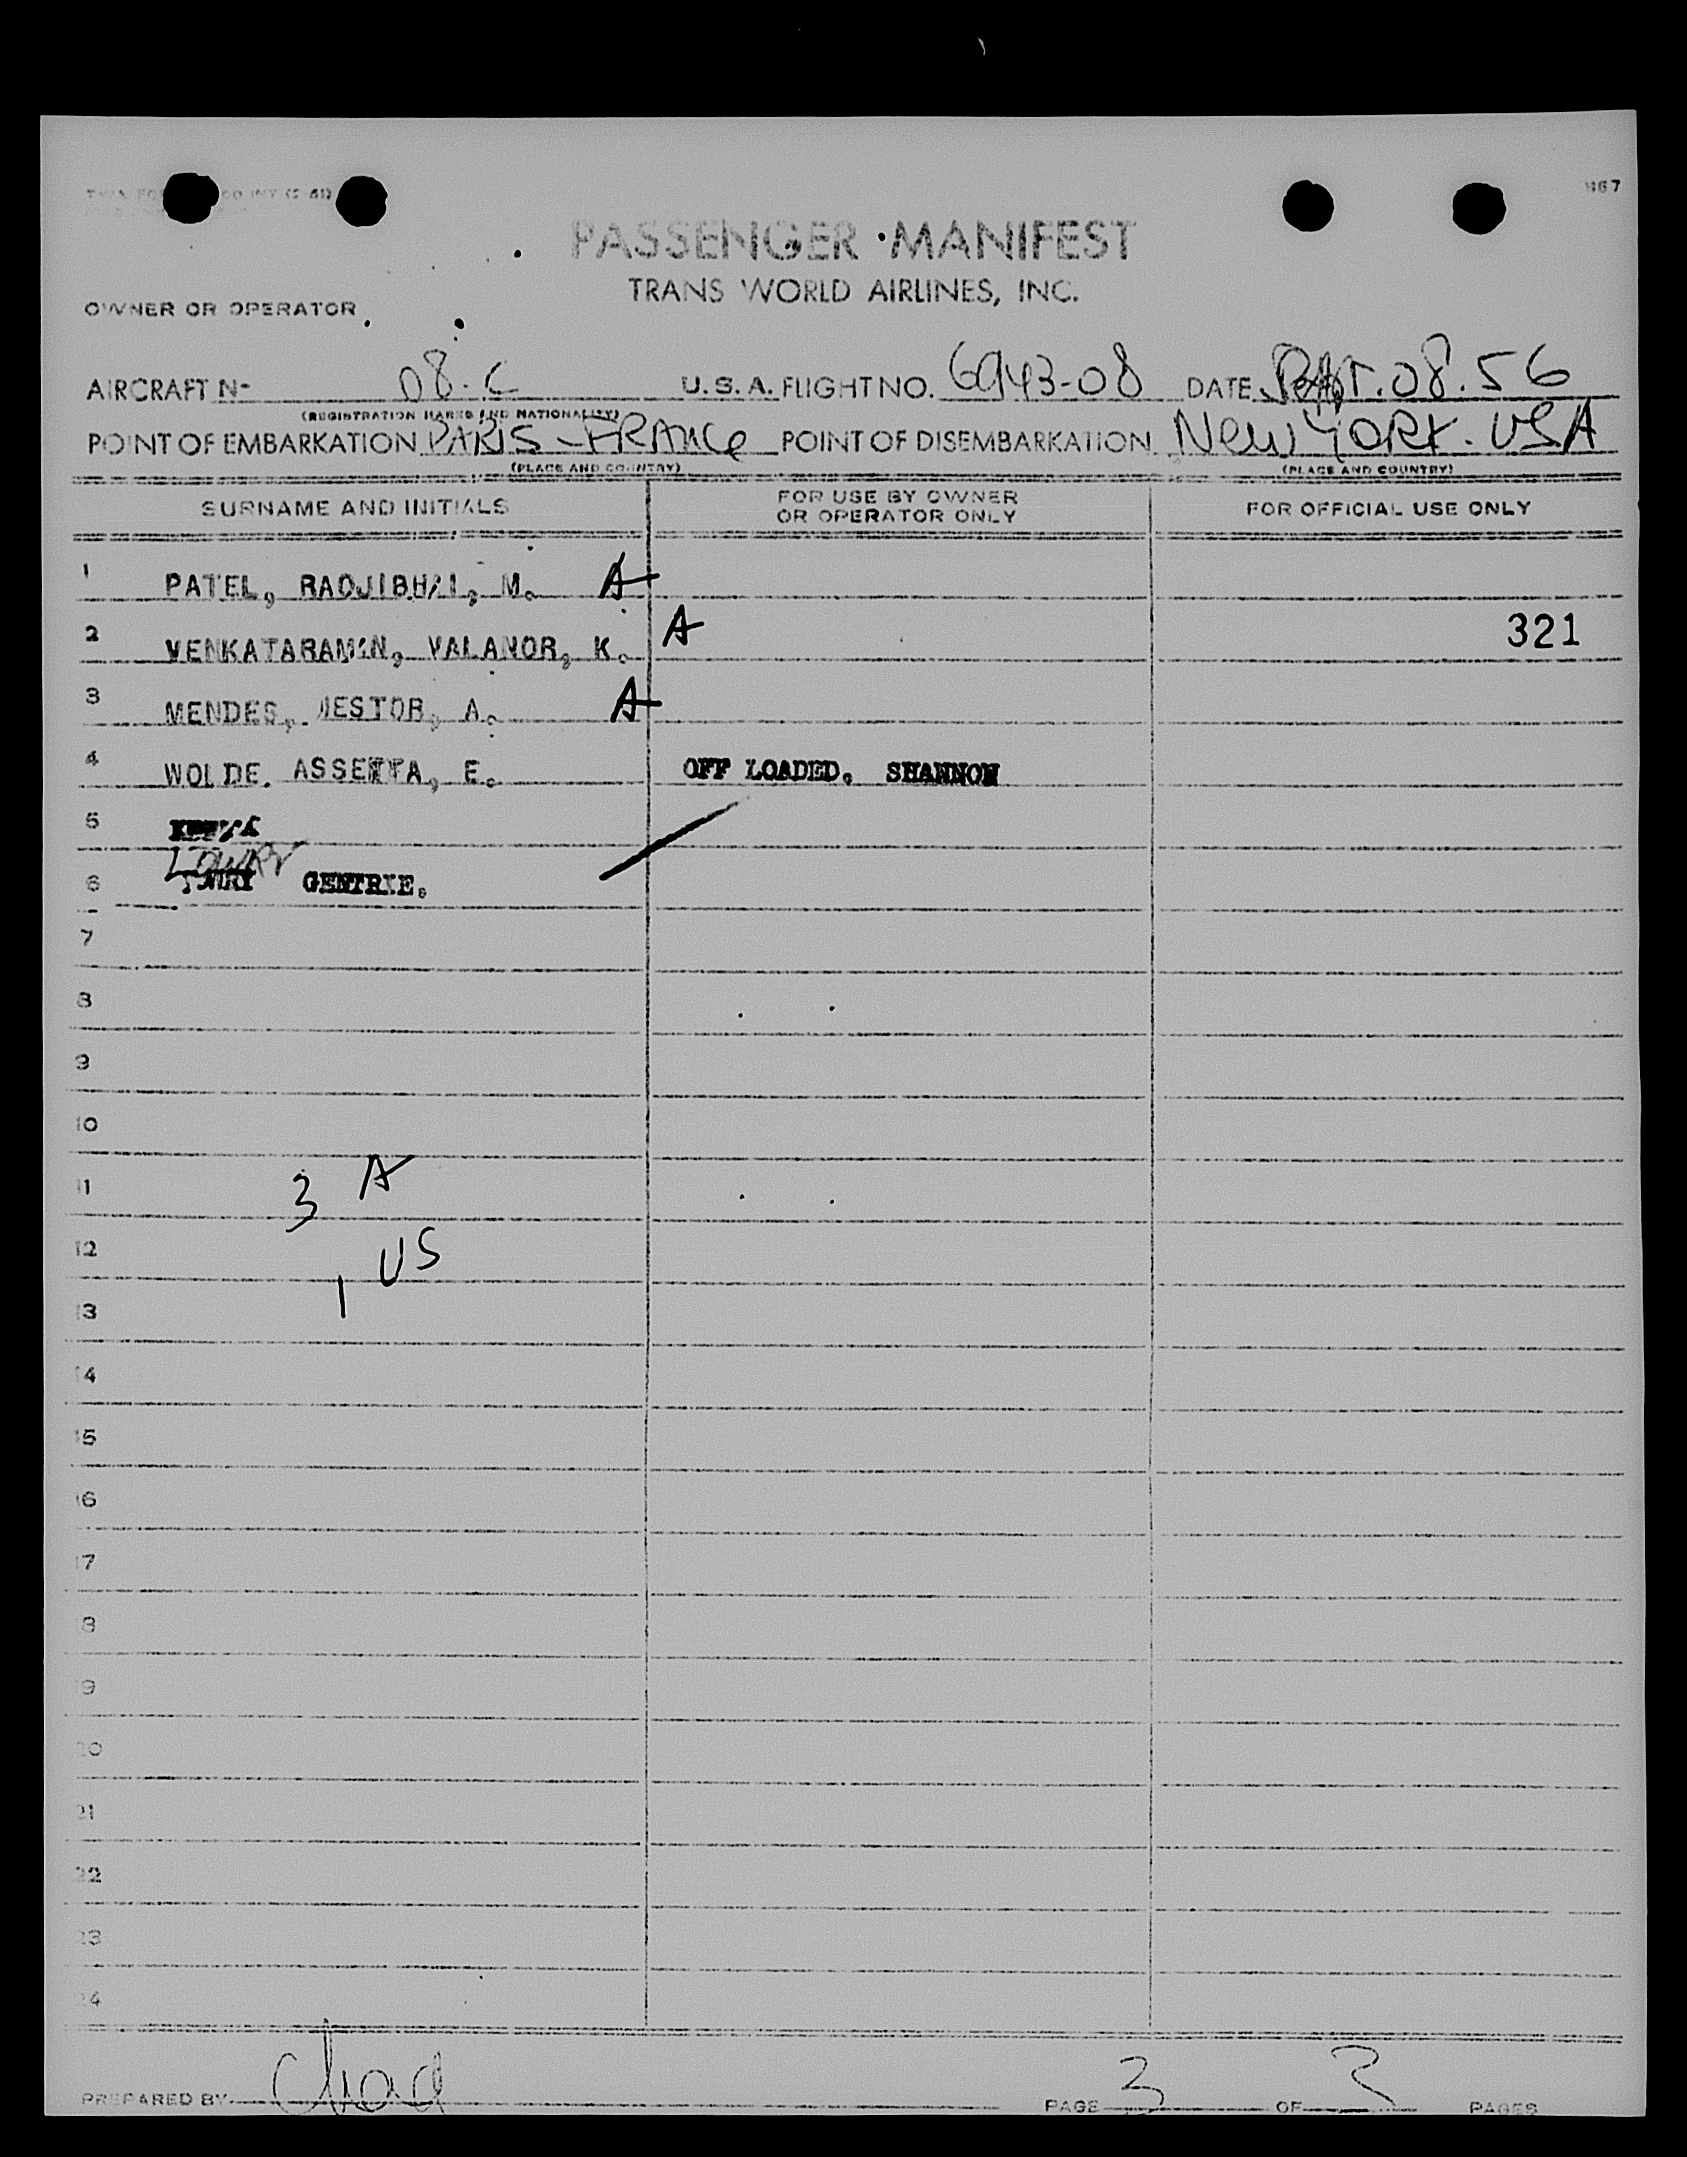 467
PASSENGER MANIFEST
TRANS WORLD AIRLINES, INC.
OWNER OR OPERATOR
AIRCRAFT No 08.C U.S.A. FLIGHT NO. 6943-08 DATE SEPT.08.56
(REGISTRATION MARKS AND NATIONALITY)
POINT OF EMBARKATION PARIS - FRANCE POINT OF DISEMBARKATION New YORK. USA
(PLACE AND COUNTRY) (PLACE AND COUNTRY)
SURNAME AND INITIALS FOR USE BY OWNER OR OPERATOR ONLY FOR OFFICIAL USE ONLY
1 PATEL, RAOJIBHAI, M. A
2 VENKATARAMAN, VALANOR, K. A 321
3 MENDES, NESTOR, A. A
4 WOLDE. ASSEFFA, E. OFF LOADED. SHANNON
5
LOWRY
6 GENTRIE.
7
8
9
10
11 3 A
12 1 US
13
14
15
16
17
18
19
20
21
22
23
24
PREPARED BY PAGE 3 OF 3 PAGES